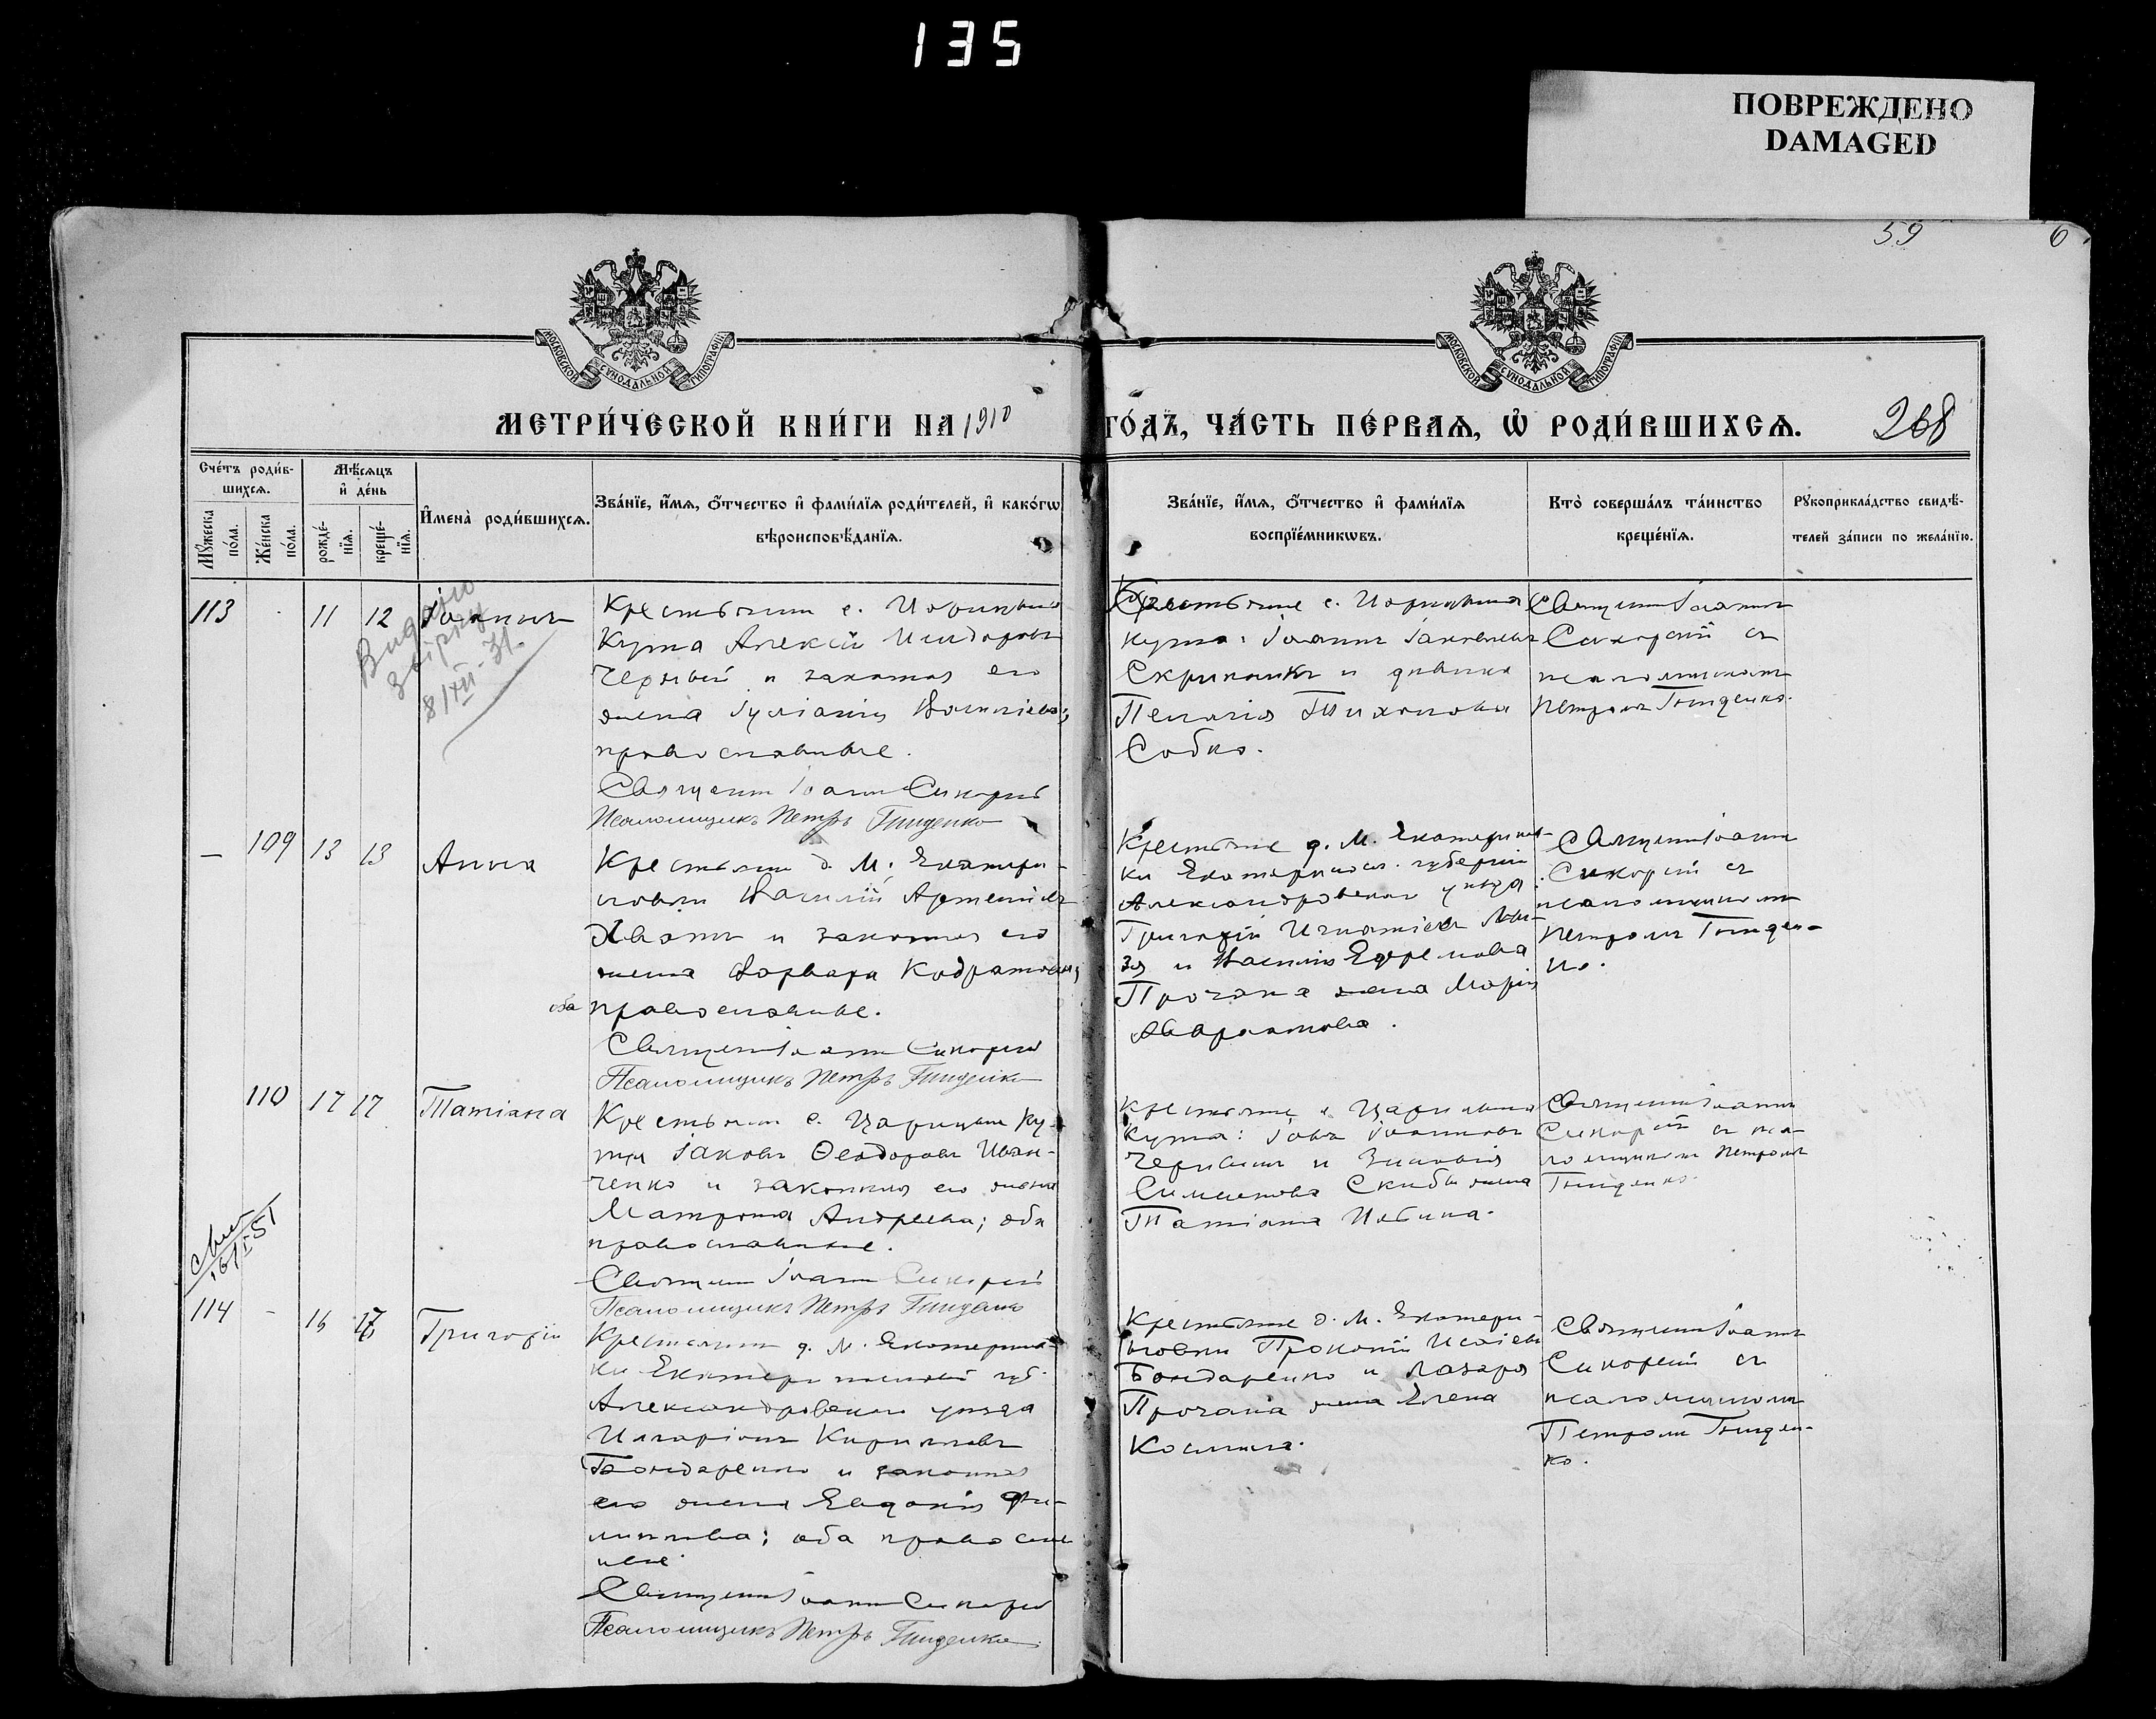 135
ПОВРЕЖДЕНО
DAMAGED
59
6
МОСКОВСКОЙ СѴНОДАЛЬНОЙ ТИПОГРАФІИ
МОСКОВСКОЙ СѴНОДАЛЬНОЙ ТИПОГРАФІИ
МЕТРИ́ЧЕСКОЙ КНИ́ГИ НА 1910
ГО́ДЪ, ЧА́СТЬ ПЕ́РВАѦ, Ѡ҆ РОДИ́ВШИХСѦ.
268
Сче́тъ роди́в-
шихсѧ.
Мꙋ́жеска
по́ла.
Же́нска
по́ла.
Мѣ́сѧцъ
и҆ де́нь
рожде́-
нїѧ.
креще́-
нїѧ.
И҆мена̀ роди́вшихсѧ.
Зва́нїе, и҆́мѧ, ѻ҆́тчество и҆ фами́лїѧ роди́телей, и҆ како́гѡ
вѣроисповѣ́данїѧ.
Зва́нїе, и҆́мѧ, ѻ҆́тчество и҆ фами́лїѧ
воспрїе́мникѡвъ.
Кто̀ соверша́лъ та́инство
креще́нїѧ.
Рꙋкоприкла́дство свидѣ́-
телей за́писи по жела́нїю.
113
11
12
Іоаннъ
Видано
8/XII-31.
Крестьянин с. Царицына
Кута Алексѣй Исидоровъ
Черный и законная его
жена Іуліанія
православные.
Священ Іоанн Сикорскій
Псаломщикъ Петръ Гниденко
Крестьяне с. Царицына
Кута: Іоаннъ Іаковлевъ
Скрипникъ и дѣвица
Пелагія Тихонова
Собко.
Священ Іоаннъ
Сикорскій съ
псаломщикомъ
Петромъ Гниденко.
—
109
13
13
Анна
Крестьянин д. М. Екатери-
новки Василій Артеміевъ
Хватъ и законная его
жена Варвара Кодратова;
оба
православные.
Священ Іоанн Сикорскій
Псаломщикъ Петръ Гниденко
Крестьяне д. М. Екатеринов-
ки Екатериносл. губерніи
Александровскаго уѣзда
Григорій Игнатіевъ
и Василія Ефремова
Прочана жена Марія
Священ Іоаннъ
Сикорскій съ
псаломщикомъ
Петромъ Гниден-
ко.
110
17
17
Татіана
Крестьянин с. Царицына Ку-
та Іаковъ Ѳеодоровъ Иван-
ченко и законная его жена
Матрона Андреева; оба
православные.
Священ Іоанн Сикорскій
Псаломщикъ Петръ Гниденко
Крестьяне с. Царицына
Кута: Іовъ Іоанновъ
и Зиновія
Симеонова Скибы жена
Татіана
Священ Іоаннъ
Сикорскій съ пса-
ломщикомъ Петромъ
Гниденко.
16/I 51
114
-
16
Григорій
Крестьянин д. М. Екатеринов-
ки Екатеринославской губ.
Александровскаго уѣзда
Иларіонъ Кириловъ
Бондаренко и законная
его жена Евдокія Фи-
липпова; оба православ-
ные.
Священ Іоанн Сикорскій
Псаломщикъ Петръ Гниденко
Крестьяне д. М. Екатери-
новки Прокопій Исаіевъ
Бондаренко и Лазаря
Прочана жена Елена
Косьмина.
Священ Іоаннъ
Сикорскій съ
псаломщикомъ
Петромъ Гниден-
ко.